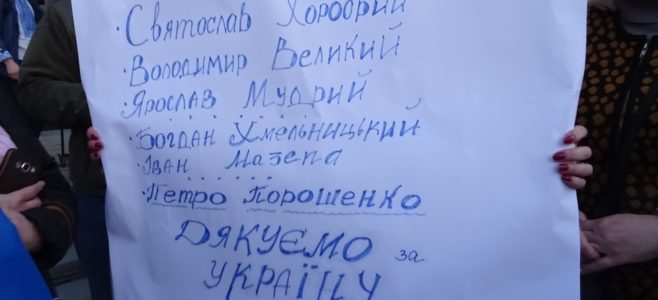 · Святослав Хоробрий
· Володимир Великий
· Ярослав Мудрий
. . . . .
· Богдан Хмельницький
· Іван Мазепа
. . . . . .
· Петро Порошенко
Дякуємо за
Україну